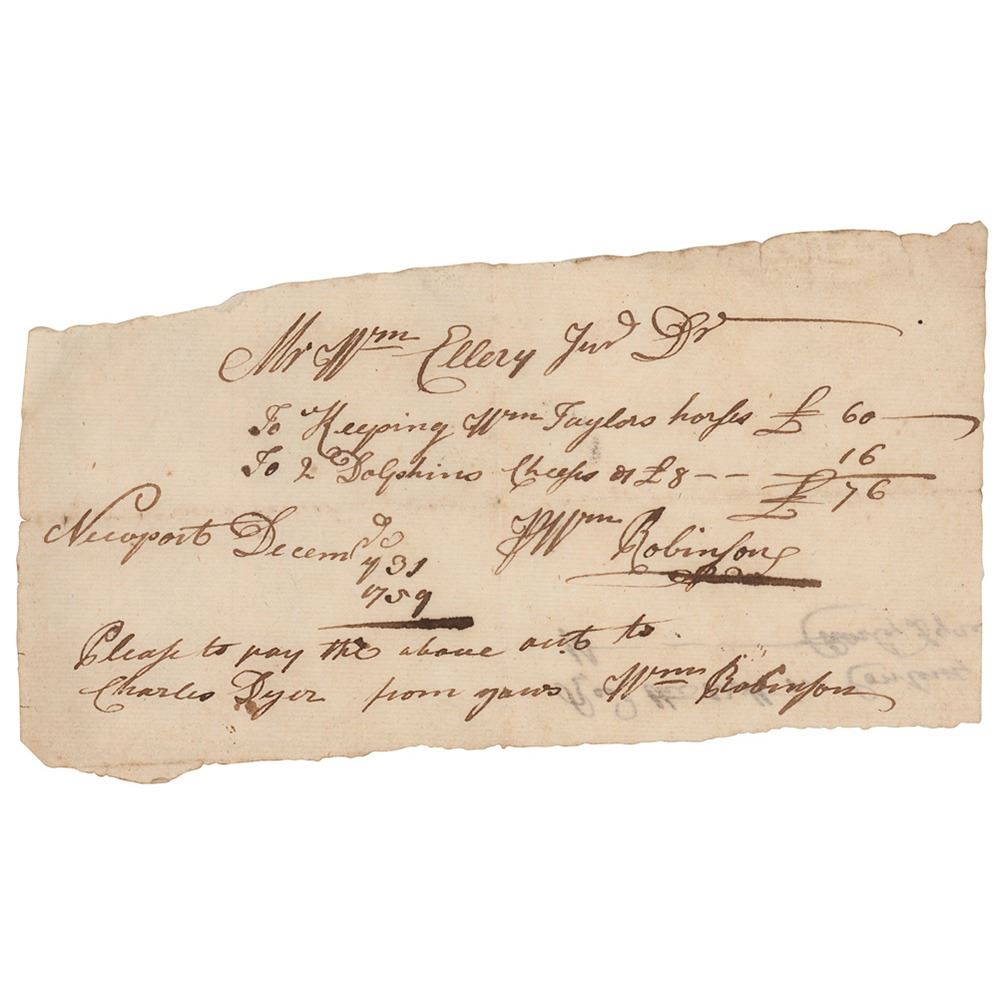 Mr Wm Ellery Junr Dr
To Keeping Wm Taylors horses £ 60
To 2 Dolphins Cheess at £8 -- 16
£ 76
Newport Decemr ye 31 1759
Pr Wm Robinson
Please to pay the above actt to
Charles Dyer from yours Wm Robinson